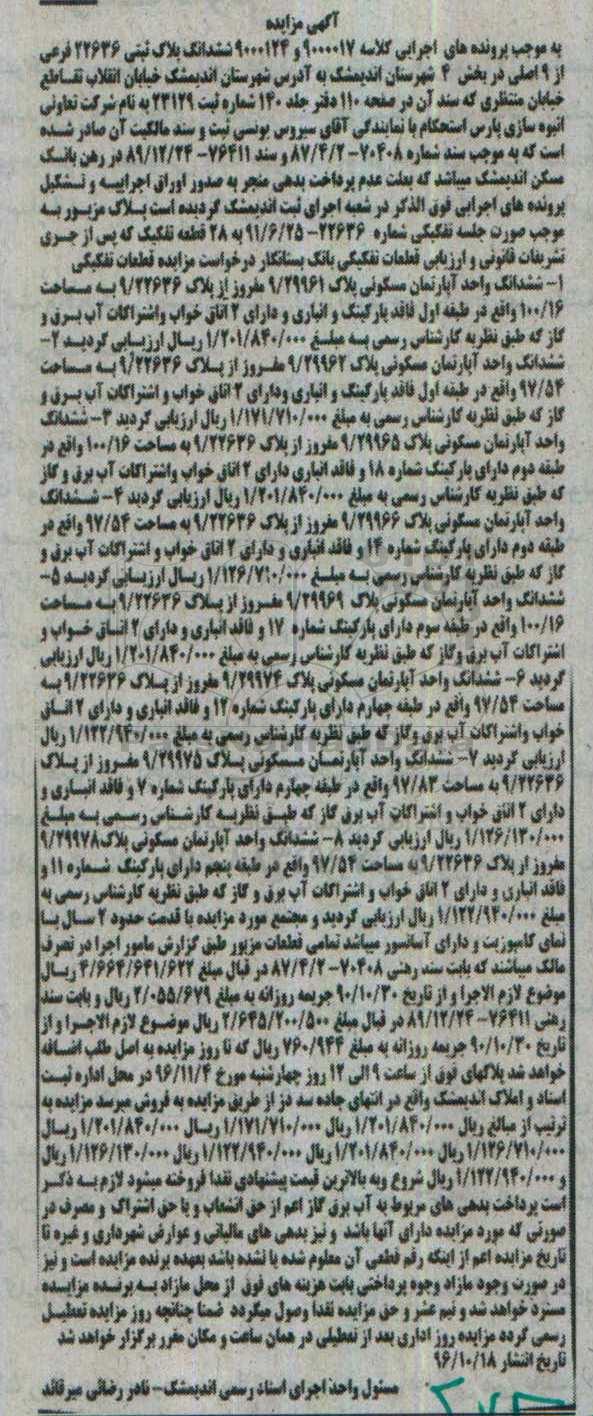 آگهی مزایده
به موجب پرونده های اجرایی کلاسه ۹۰۰۰۰۱۷ و ۹۰۰۰۱۲۴ ششدانگ پلاک ثبتی ۲۲۶۳۶ فرعی
از ۹ اصلی در بخش ۴ شهرستان اندیمشک به آدرس شهرستان اندیمشک خیابان انقلاب تقاطع
خیابان منتظری که سند آن در صفحه ۱۱۰ دفتر جلد ۱۴۰ شماره ثبت ۲۳۱۲۹ به نام شرکت تعاونی
انبوه سازی پارس استحکام با نمایندگی آقای سیروس یونسی ثبت و سند مالکیت آن صادر شده
است که به موجب سند شماره ۷۰۴۰۸-۸۷/۴/۲ و سند ۷۶۴۱۱-۸۹/۱۲/۲۴ در رهن بانک
مسکن اندیمشک میباشد که بعلت عدم پرداخت بدهی منجر به صدور اوراق اجراییه و تشکیل
پرونده های اجرایی فوق الذکر در شعبه اجرای ثبت اندیمشک گردیده است پلاک مزبور به
موجب صورت جلسه تفکیکی شماره ۲۲۶۳۶-۹۱/۶/۲۵ به ۲۸ قطعه تفکیک که پس از جری
تشریفات قانونی و ارزیابی قطعات تفکیکی بانک بستانکار درخواست مزایده قطعات تفکیکی
۱- ششدانگ واحد آپارتمان مسکونی پلاک ۹/۲۹۹۶۱ مفروز از پلاک ۹/۲۲۶۳۶ به مساحت
۱۰۰/۱۶ واقع در طبقه اول فاقد پارکینگ و انباری و دارای ۲ اتاق خواب واشتراکات آب برق و
گاز که طبق نظریه کارشناس رسمی به مبلغ ۱/۲۰۱/۸۴۰/۰۰۰ ریال ارزیابی گردید ۲-
ششدانگ واحد آپارتمان مسکونی پلاک ۹/۲۹۹۶۲ مفروز از پلاک ۹/۲۲۶۳۶ به مساحت
۹۷/۵۴ واقع در طبقه اول فاقد پارکینگ و انباری ودارای ۲ اتاق خواب و اشتراکات آب برق و
گاز که طبق نظریه کارشناس رسمی به مبلغ ۱/۱۷۱/۷۱۰/۰۰۰ ریال ارزیابی گردید ۳- ششدانگ
واحد آپارتمان مسکونی پلاک ۹/۲۹۹۶۵ مفروز از پلاک ۹/۲۲۶۳۶ به مساحت ۱۰۰/۱۶ واقع در
طبقه دوم دارای پارکینگ شماره ۱۸ و فاقد انباری دارای ۲ اتاق خواب واشتراکات آب برق و گاز
که طبق نظریه کارشناس رسمی به مبلغ ۱/۲۰۱/۸۴۰/۰۰۰ ریال ارزیابی گردید ۴- ششدانگ
واحد آپارتمان مسکونی پلاک ۹/۲۹۹۶۶ مفروز از پلاک ۹/۲۲۶۳۶ به مساحت ۹۷/۵۴ واقع در
طبقه دوم دارای پارکینگ شماره ۱۴ و فاقد انباری و دارای ۲ اتاق خواب و اشتراکات آب برق و
گاز که طبق نظریه کارشناس رسمی به مبلغ ۱/۱۲۶/۷۱۰/۰۰۰ ریال ارزیابی گردید ۵-
ششدانگ واحد آپارتمان مسکونی پلاک ۹/۲۹۹۶۹ مفروز از پلاک ۹/۲۲۶۳۶ به مساحت
۱۰۰/۱۶ واقع در طبقه سوم دارای پارکینگ شماره ۱۷ و فاقد انباری و دارای ۲ اتاق خواب و
اشتراکات آب برق وگاز که طبق نظریه کارشناس رسمی به مبلغ ۱/۲۰۱/۸۴۰/۰۰۰ ریال ارزیابی
گردید ۶- ششدانگ واحد آپارتمان مسکونی پلاک ۹/۲۹۹۷۴ مفروز از پلاک ۹/۲۲۶۳۶ به
مساحت ۹۷/۵۴ واقع در طبقه چهارم دارای پارکینگ شماره ۱۲ و فاقد انباری و دارای ۲ اتاق
خواب واشتراکات آب برق وگاز که طبق نظریه کارشناس رسمی به مبلغ ۱/۱۲۲/۹۴۰/۰۰۰ ریال
ارزیابی گردید ۷- ششدانگ واحد آپارتمان مسکونی پلاک ۹/۲۹۹۷۵ مفروز از پلاک
۹/۲۲۶۳۶ به مساحت ۹۷/۸۳ واقع در طبقه چهارم دارای پارکینگ شماره ۷ و فاقد انباری و
دارای ۲ اتاق خواب و اشتراکات آب برق گاز که طبق نظریه کارشناس رسمی به مبلغ
۱/۱۲۶/۱۳۰/۰۰۰ ریال ارزیابی گردید ۸- ششدانگ واحد آپارتمان مسکونی پلاک۹/۲۹۹۷۸
مفروز از پلاک ۹/۲۲۶۳۶ به مساحت ۹۷/۵۴ واقع در طبقه پنجم دارای پارکینگ شماره ۱۱ و
فاقد انباری و دارای ۲ اتاق خواب و اشتراکات آب برق و گاز که طبق نظریه کارشناس رسمی به
مبلغ ۱/۱۲۲/۹۴۰/۰۰۰ ریال ارزیابی گردید و مجتمع مورد مزایده با قدمت حدود ۲ سال با
نمای کامپوزیت و دارای آسانسور میباشد تمامی قطعات مزبور طبق گزارش مامور اجرا در تصرف
مالک میباشند که بابت سند رهنی ۷۰۴۰۸-۸۷/۴/۲ در قبال مبلغ ۴/۶۶۴/۶۴۱/۶۲۲ ریال
موضوع لازم الاجرا و از تاریخ ۹۰/۱۰/۳۰ جریمه روزانه به مبلغ ۲/۰۵۵/۶۷۹ ریال و بابت سند
رهنی ۷۶۴۱۱-۸۹/۱۲/۲۴ در قبال مبلغ ۲/۶۴۵/۲۰۰/۵۰۰ ریال موضوع لازم الاجرا و از
تاریخ ۹۰/۱۰/۳۰ جریمه روزانه به مبلغ ۷۶۰/۹۴۴ ریال که تا روز مزایده به اصل طلب اضافه
خواهد شد پلاکهای فوق از ساعت ۹ الی ۱۲ روز چهارشنبه مورخ ۹۶/۱۱/۴ در محل اداره ثبت
اسناد و املاک اندیمشک واقع در انتهای جاده سد دز از طریق مزایده به فروش میرسد مزایده به
ترتیب از مبالغ ریال ۱/۲۰۱/۸۴۰/۰۰۰ ریال ۱/۱۷۱/۷۱۰/۰۰۰ ریال ۱/۲۰۱/۸۴۰/۰۰۰ ریال
۱/۱۲۶/۷۱۰/۰۰۰ ریال ۱/۲۰۱/۸۴۰/۰۰۰ ریال ۱/۱۲۲/۹۴۰/۰۰۰ ریال ۱/۱۲۶/۱۳۰/۰۰۰ ریال
و ۱/۱۲۲/۹۴۰/۰۰۰ ریال شروع وبه بالاترین قیمت پیشنهادی نقدا فروخته میشود لازم به ذکر
است پرداخت بدهی های مربوط به آب برق گاز اعم از حق انشعاب و یا حق اشتراک و مصرف در
صورتی که مورد مزایده دارای آنها باشد و نیز بدهی های مالیاتی و عوارض شهرداری و غیره تا
تاریخ مزایده اعم از اینکه رقم قطعی آن معلوم شده یا نشده باشد بعهده برنده مزایده است و نیز
در صورت وجود مازاد وجوه پرداختی بابت هزینه های فوق از محل مازاد به برنده مزایده
مسترد خواهد شد و نیم عشر و حق مزایده نقدا وصول میگردد ضمنا چنانچه روز مزایده تعطیل
رسمی گردد مزایده روز اداری بعد از تعطیلی در همان ساعت و مکان مقرر برگزار خواهد شد
تاریخ انتشار ۹۶/۱۰/۱۸
مسئول واحد اجرای اسناد رسمی اندیمشک- نادر رضائی میرقائد